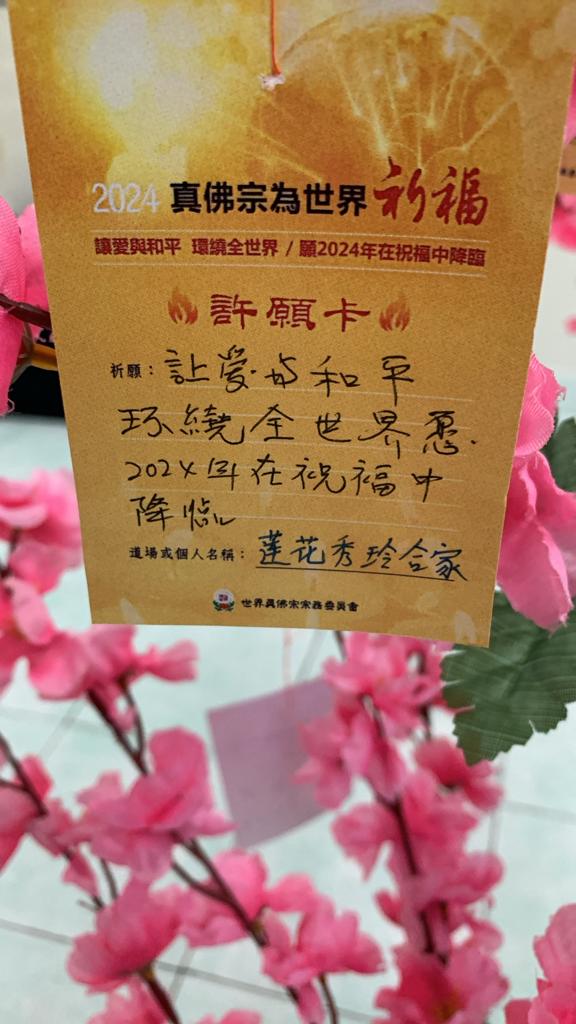 2024 真佛宗為世界祈福
讓愛與和平 環繞全世界 / 願2024年在祝福中降臨
許願卡
祈願：让爱与和平
环繞全世界愿
2024年在祝福中
降临
道場或個人名稱：蓮花秀玲合家
世界真佛宗宗務委員會